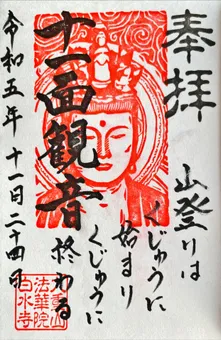 奉拝
山登りは
くじゅうに
始まり
くじゅうに
終わる
十一面観音
令和五年十一月二十四日
九重山
法華院
白水寺